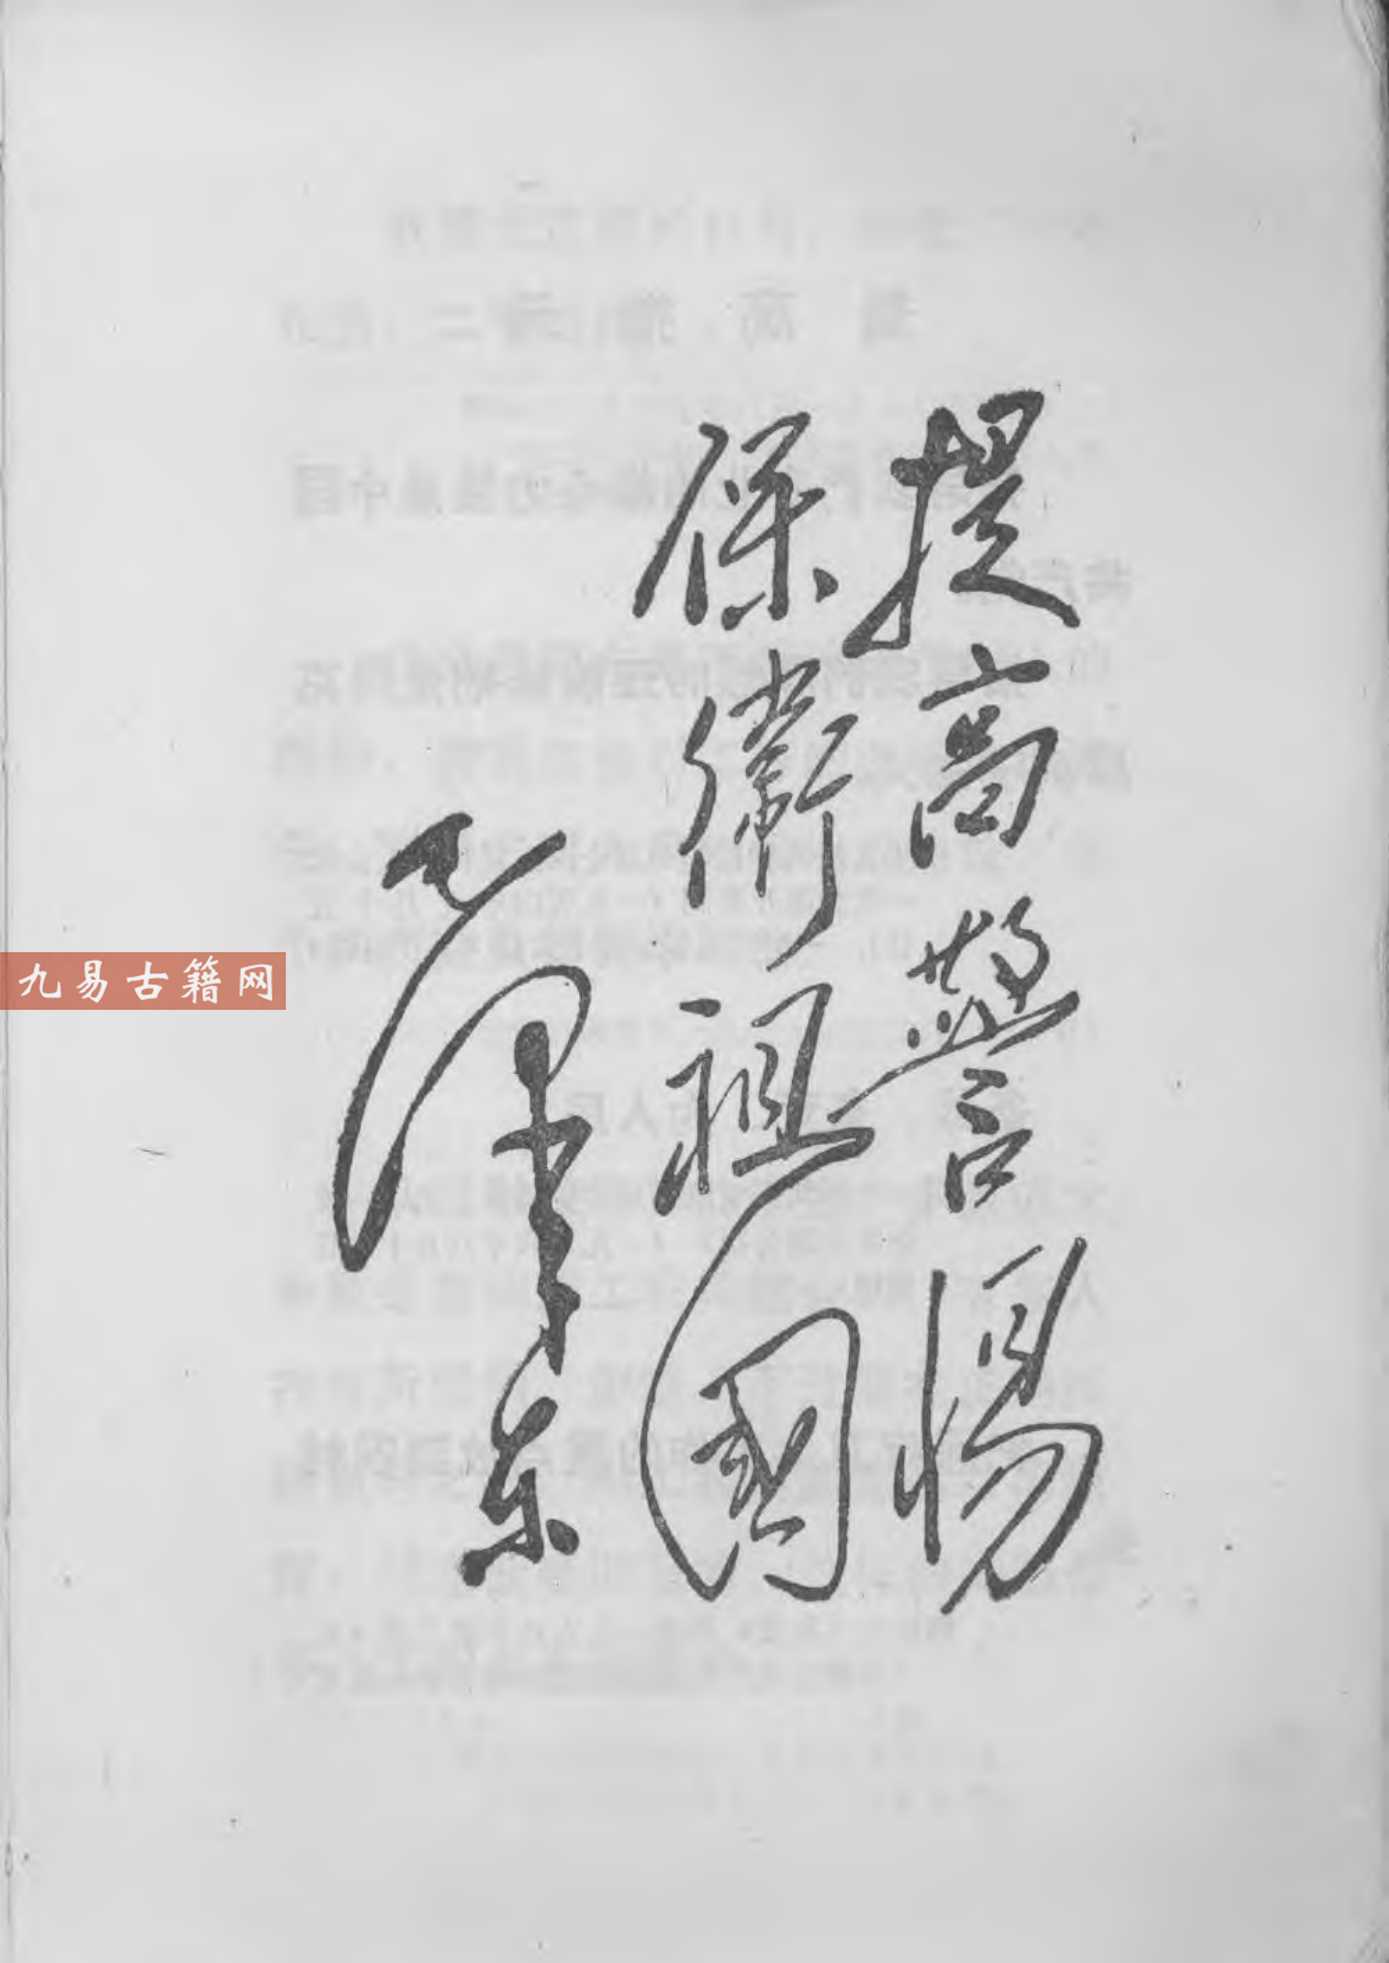 提高警惕
保衛祖國
毛澤东
九易古籍网